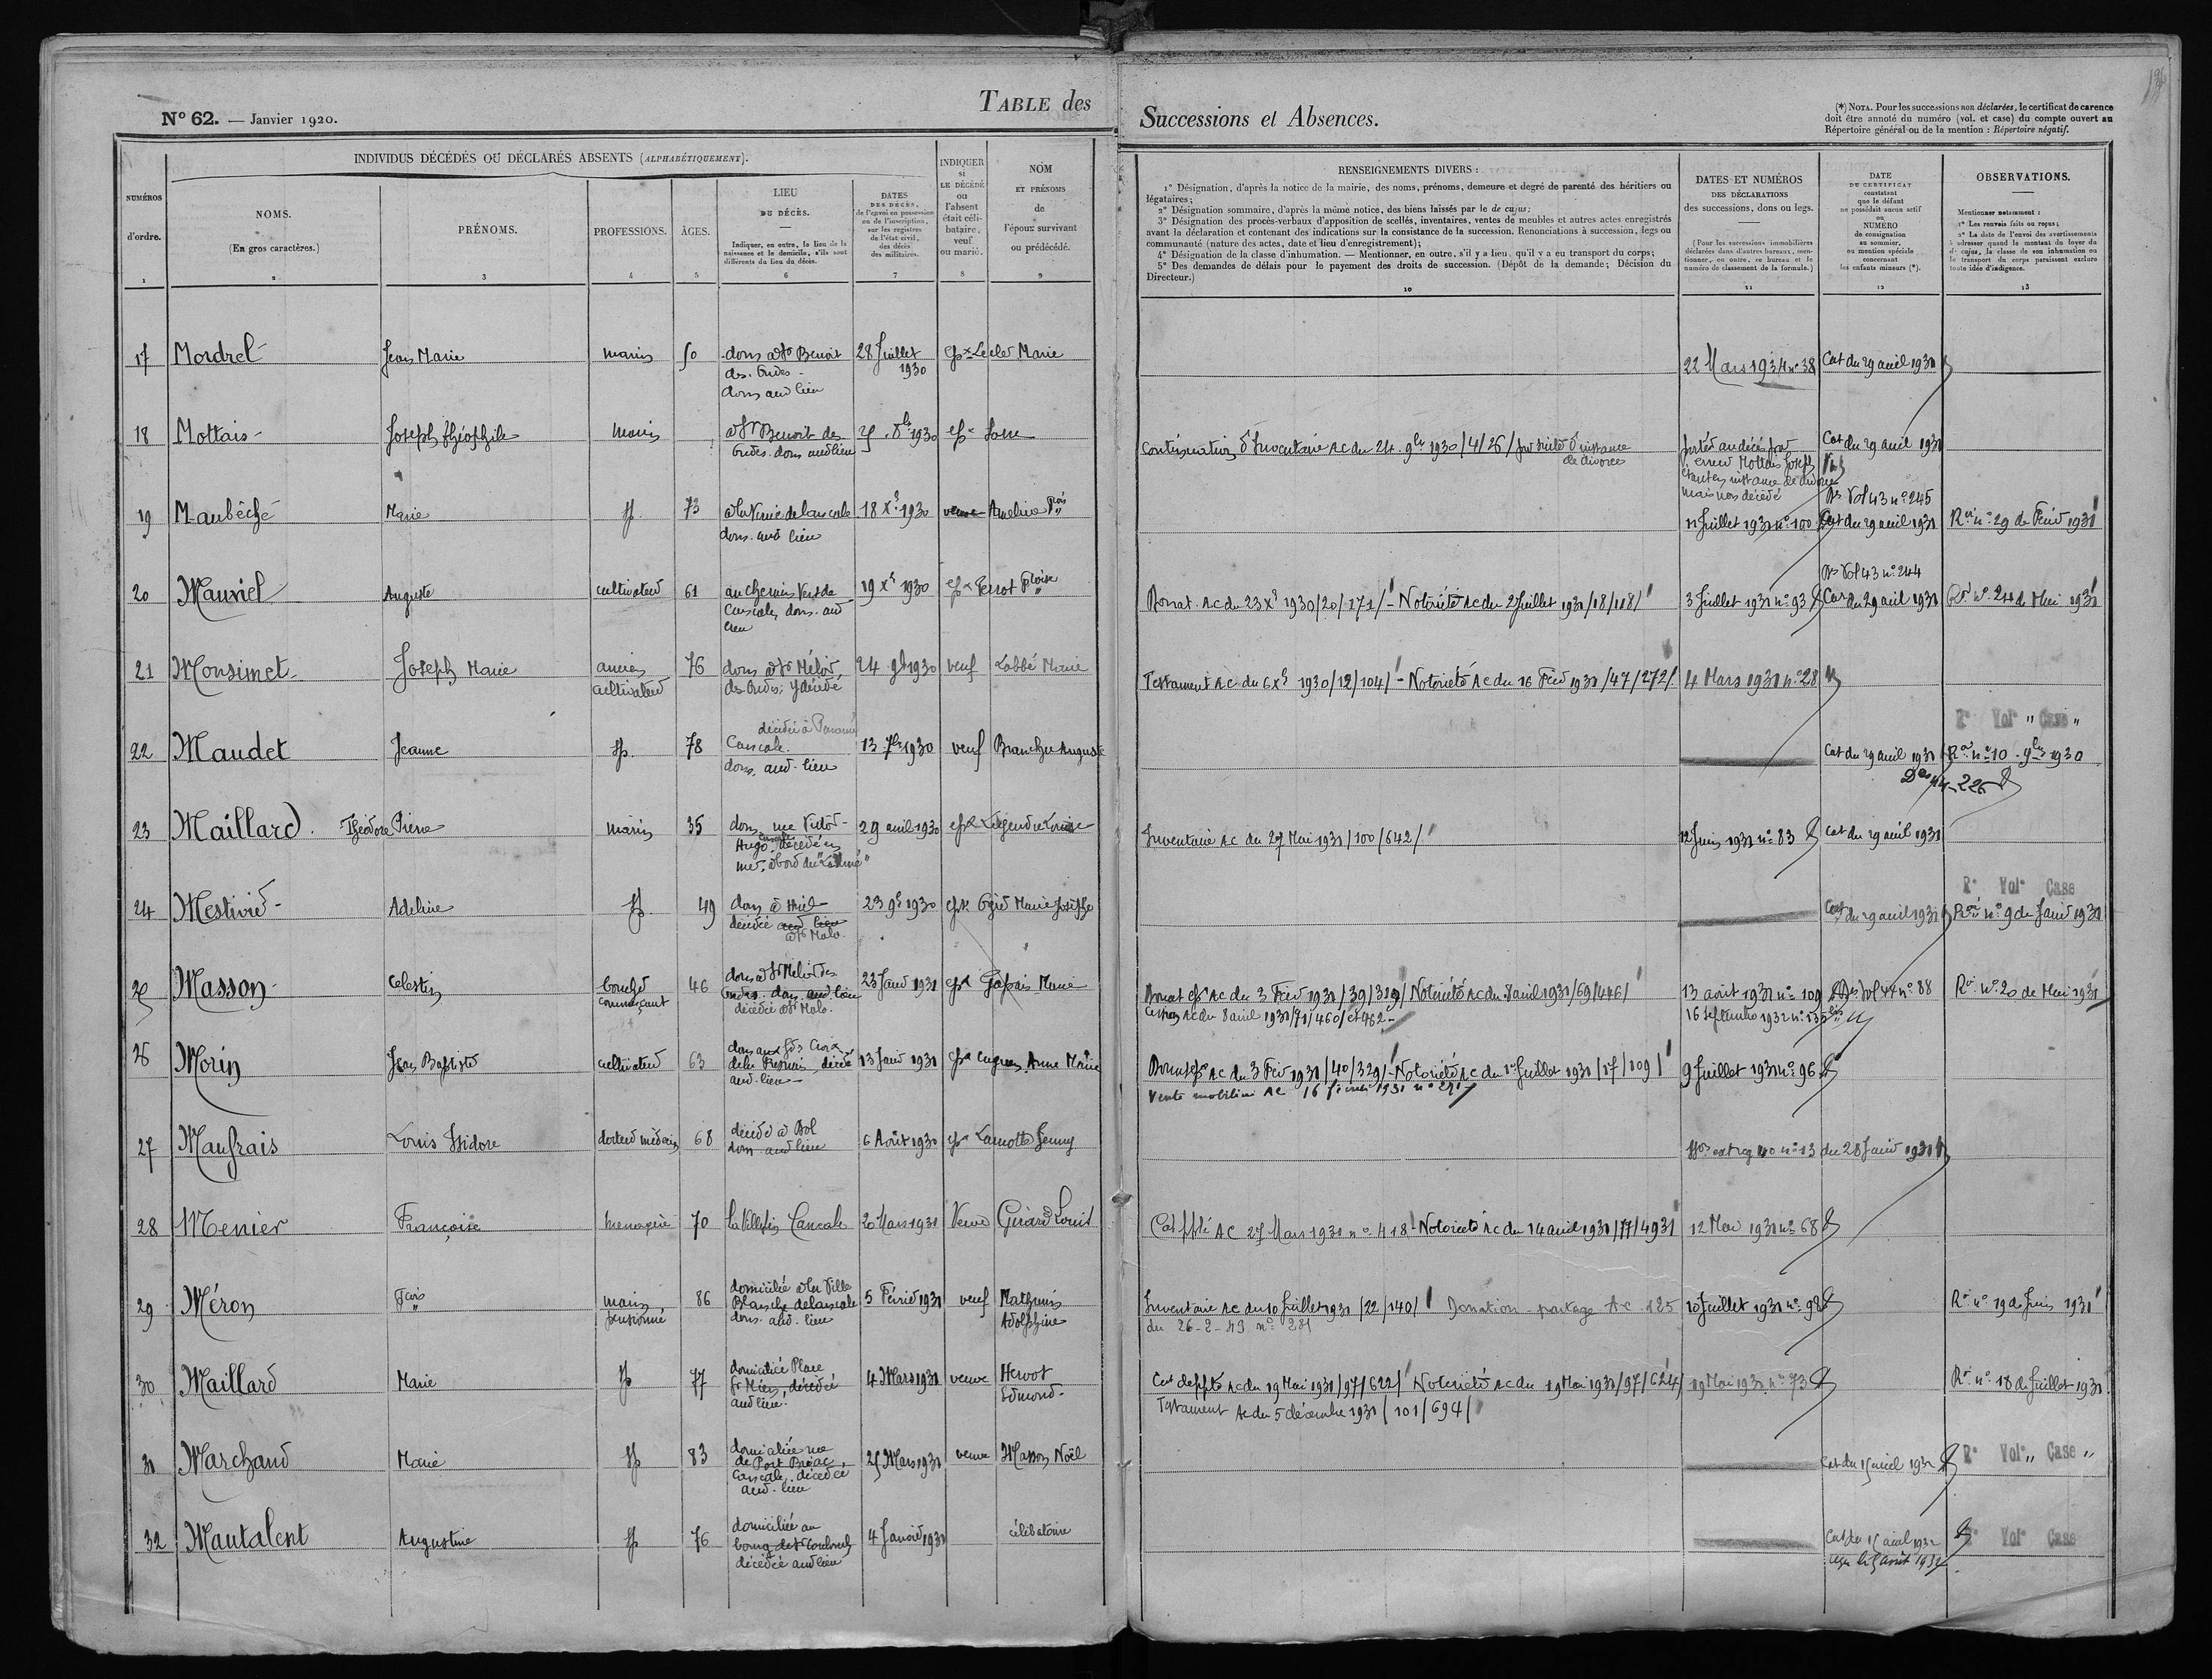 TABLE des
Successions et Absences.
N° 62. — Janvier 1920.
(*) NOTA. Pour les successions non déclarées, le certificat de carence
doit être annoté du numéro (vol. et case) du compte ouvert au
Répertoire général ou de la mention : Répertoire négatif.
NUMÉROS
d'ordre.
1
INDIVIDUS DÉCÉDÉS OU DÉCLARÉS ABSENTS (ALPHABÉTIQUEMENT).
NOMS.
(En gros caractères.)
2
PRÉNOMS.
3
PROFESSIONS.
4
ÂGES.
5
LIEU
DU DÉCÈS.
Indiquer, en outre, le lieu de la
naissance et le domicile, s'ils sont
différents du lieu du décès.
6
DATES
DES DÉCÈS,
de l'envoi en possession
ou de l'inscription,
sur les registres
de l'état civil,
des décès
des militaires.
7
INDIQUER
si
LE DÉCÉDÉ
ou
l'absent
était céli-
bataire,
veuf
ou marié.
8
NOM
ET PRÉNOMS
de
l'époux survivant
ou prédécédé.
9
RENSEIGNEMENTS DIVERS :
1° Désignation, d'après la notice de la mairie, des noms, prénoms, demeure et degré de parenté des héritiers ou
légataires;
2° Désignation sommaire, d'après la même notice, des biens laissés par le de cujus;
3° Désignation des procès-verbaux d'apposition de scellés, inventaires, ventes de meubles et autres actes enregistrés
avant la déclaration et contenant des indications sur la consistance de la succession. Renonciations à succession, legs ou
communauté (nature des actes, date et lieu d'enregistrement);
4° Désignation de la classe d'inhumation. — Mentionner, en outre, s'il y a lieu, qu'il y a eu transport du corps;
5° Des demandes de délais pour le payement des droits de succession. (Dépôt de la demande; Décision du
Directeur.)
10
DATES ET NUMÉROS
DES DÉCLARATIONS
des successions, dons ou legs.
(Pour les successions immobilières
déclarées dans d'autres bureaux, men-
tionner, en outre, ce bureau et le
numéro de classement de la formule.)
11
DATE
DU CERTIFICAT
constatant
que le défunt
ne possédait aucun actif
ou
NUMÉRO
de consignation
au sommier,
ou mention spéciale
concernant
les enfants mineurs (*).
12
OBSERVATIONS.
Mentionner notamment :
1° Les renvois faits ou reçus;
2° La date de l'envoi des avertissements
à adresser quand le montant du loyer du
de cujus, la classe de son inhumation ou
le transport du corps paraissent exclure
toute idée d'indigence.
13
17 Mordrel Jean Marie marin 50 dom à St Benoit 28 Juillet 1930 Marie
des Ondes
dom aud lieu
22 Mars 1934 n° 38 Cat du 29 avril 1931
18 Mottais Joseph Théophile marin à St Benoit des
Ondes. dom aud lieu
Continuation d'Inventaire AC du 24 9bre 1930/4/26/ par suite d'instance
de divorce
porté au décès par
erreur Mottais Joseph
étant en instance de divorce
mais non décédé
Cat du 29 avril 1931
19 Maubêche Marie sp. 73 18 Xbre 1930 veuve Ameline Fçois
dom. aud lieu
11 Juillet 1931 n° 100 Ds Vol 43 n° 245
Cat du 29 avril 1931 Rvi n° 29 de Févr 1931
20 Mauviel Auguste cultivateur 61 au chemin Vert de
Cancale, dom. aud
lieu 19 Xbre 1930 epx Perrot Floise
Donat. AC du 23 Xbre 1930/20/171/ - Notoriété AC du 2 Juillet 1931/18/118/
3 Juillet 1931 n° 93 Ds Vol 43 n° 244
Cat du 29 avril 1931 Rvi n° 24 de Mai 1931
21 Monsimet Joseph Marie ancien
cultivateur 76 dom à St Méloir
des Ondes, y décédé 24 9bre 1930 veuf Labbé Marie
Testament AC du 6 Xbre 1930/12/104/ - Notoriété AC du 16 Févr 1931/47/272/ 4 Mars 1931 n° 28
22 Maudet Jeanne sp. 78 décédée à Paramé
Cancale.
dom. aud. lieu 13 7bre 1930 veuf Auguste
Cat du 29 avril 1931 Rvi n° 10 9bre 1930
R° Vol° " Case "
Des 44-226
23 Maillard. Théodore Pierre marin 35 dom. rue Victor-
Hugo, Cancale décédé en
mer, à bord du 29 avril 1930 epx Legendre Louise
Inventaire AC du 27 Mai 1931/100/642/ 12 Juin 1931 n° 83 Cat du 29 avril 1931
24 Mestivier Adeline sp. 49 dom à Hirel
décédée aud lieu
à St Malo. 23 9bre 1930 Marie Josèphe
Cat du 29 avril 1931 R° Vol° Case
Rvi n° 9 de Janv 1931
25 Masson Célestin boucher
commerçant 46 dom à St Méloir des
Ondes. dom. aud lieu
décédé à St Malo. 23 Janv 1931 epx Marie
Donat epx AC du 3 Févr 1931/39/319/ Notoriété AC du 8 avril 1931/69/446/
Cession AC du 8 avril 1931/71/460/ et 462 -
13 août 1931 n° 109 Ds Vol 44 n° 88 Rvi n° 20 de Mai 1931
16 septembre 1932 n° 135 bis
26 Morin Jean Baptiste cultivateur 63 13 Janv 1931 epx Anne Marie
aud. lieu
Donat epx AC du 3 Févr 1931/40/329/ - Notoriété AC du 1er Juillet 1931/17/109/ 9 Juillet 1931 n° 96
Vente mobilière AC 16 février 1931 n° 291
27 Maufrais Louis Isidore docteur médecin 68 décédé à Dol
dom aud lieu 6 Août 1930 epx Lamotte Jenny
n° 13 du 28 Janv 1931
28 Menier Françoise ménagère 70 Cancale 20 Mars 1931 Veuve Girard Louis
Cat pplé AC 27 Mars 1931 n° 418 - Notoriété AC du 14 avril 1931/77/493/ 12 Mai 1931 n° 68
29 Méron Fçois marin
pensionné 86 domicilié à la Ville
Blanche de Cancale
dom. aud. lieu 5 Février 1931 veuf Mathurin
Adolphine
Inventaire AC du 10 Juillet 1931/22/140/ Donation partage AC 125
du 26-2-43 n° 281
10 Juillet 1931 n° 98 Rvi n° 19 de Juin 1931
30 Maillard Marie sp 77 domiciliée Place
St Méen, décédée
aud lieu. 4 Mars 1931 veuve Hervot
Edmond.
Cat de ppté AC du 19 Mai 1931/97/622/ Notoriété AC du 19 Mai 1931/97/624/ 19 Mai 1931 n° 73 Rvi n° 18 de Juillet 1931
Testament AC du 5 décembre 1931/101/694/
31 Marchand Marie sp 83 domiciliée rue
de Port Briac
Cancale, décédée
aud. lieu 25 Mars 1931 veuve Masson Noël
Cat du 15 avril 1932 R° Vol° " Case "
32 Mautalent Augustine sp 76 domiciliée au
bourg de St Coulomb
décédée aud lieu 4 Janvier 1931 célibataire
Cat du 15 avril 1932 R° Vol° Case